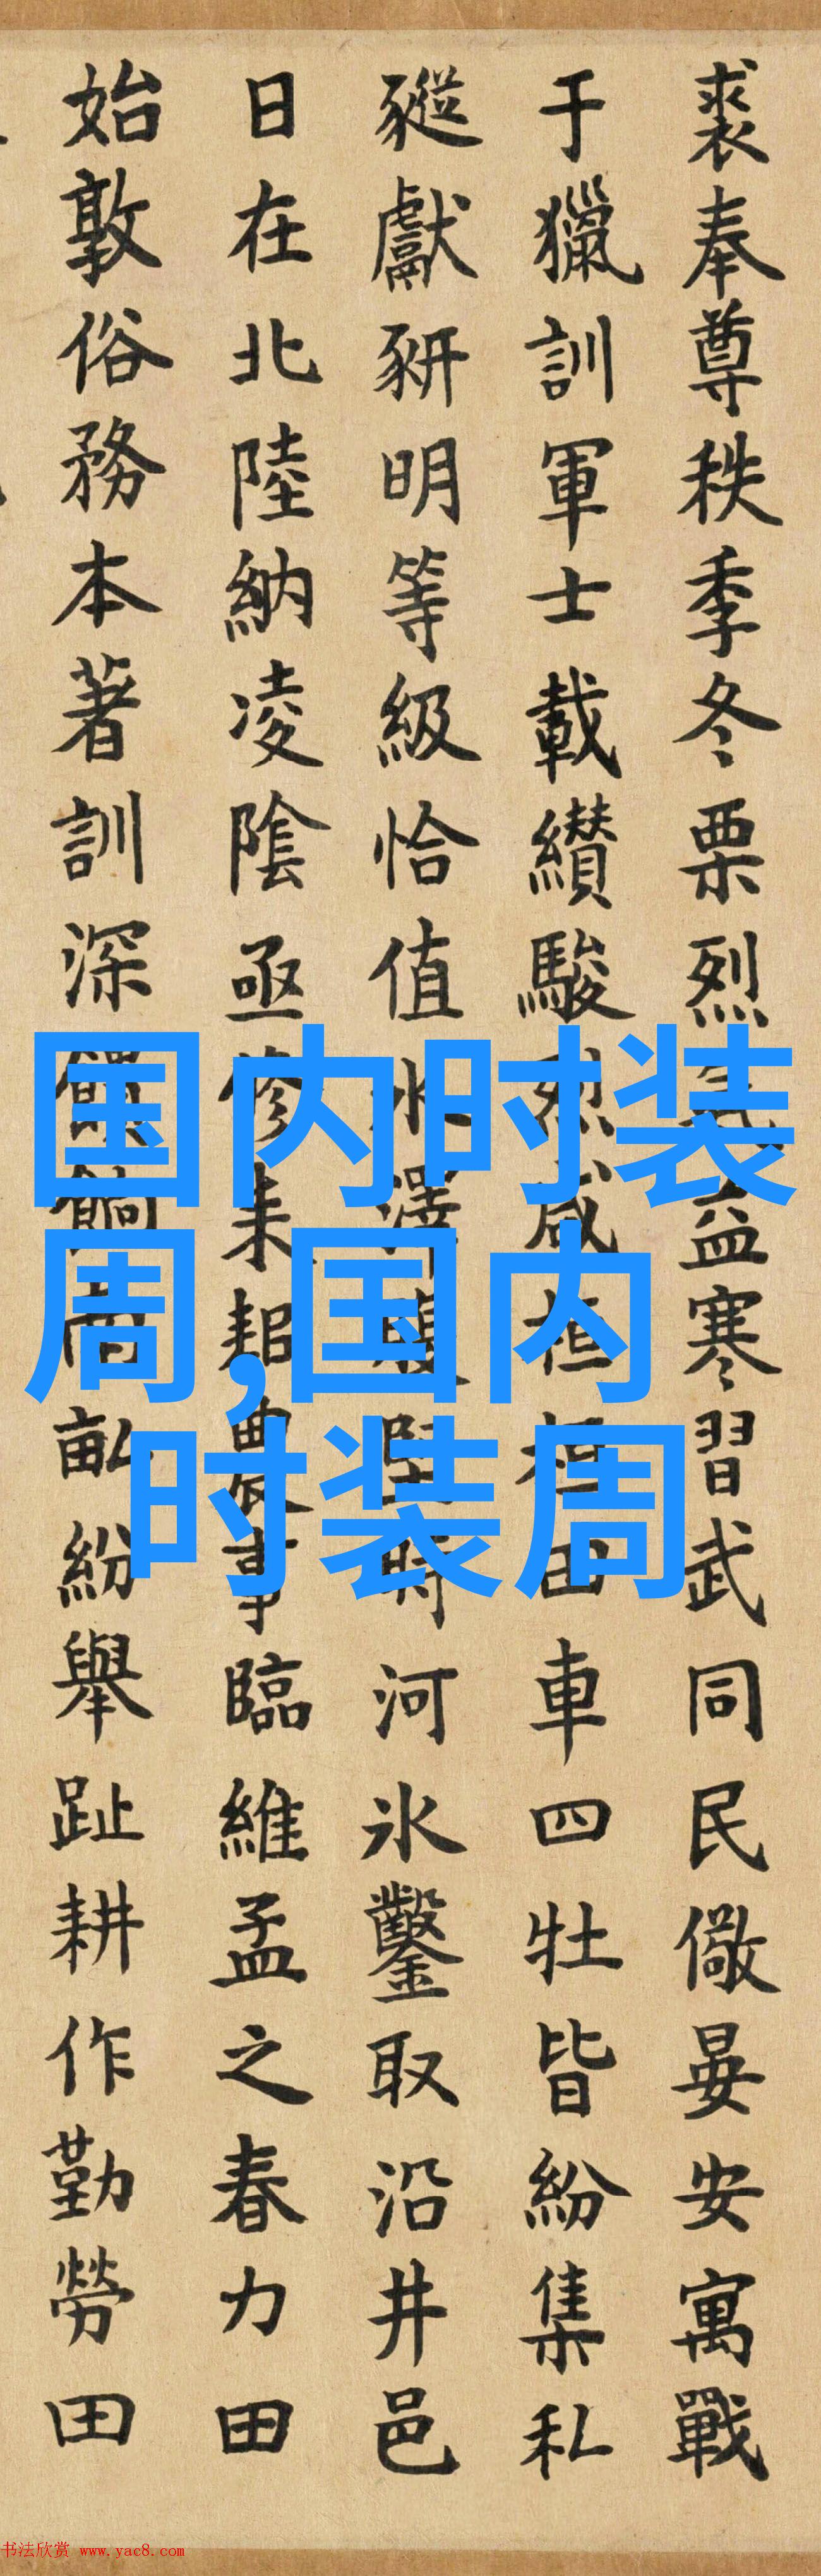 裘奉尊秩季冬栗烈氣益寒習武同民儆晏安寓戰
于獵訓軍士載纘駿烈咸桓桓田車四牡皆紛集私
豵獻豜明等級恰值水澤腹堅時河氷鑿取沿井邑
日在北陸納凌陰亟修耒耜農事臨維孟之春力田
始敦俗務本著訓深饁餉南畝紛舉趾耕作勤勞田
国内时装
周,国内
时装周
书法欣赏 www.yac8.com